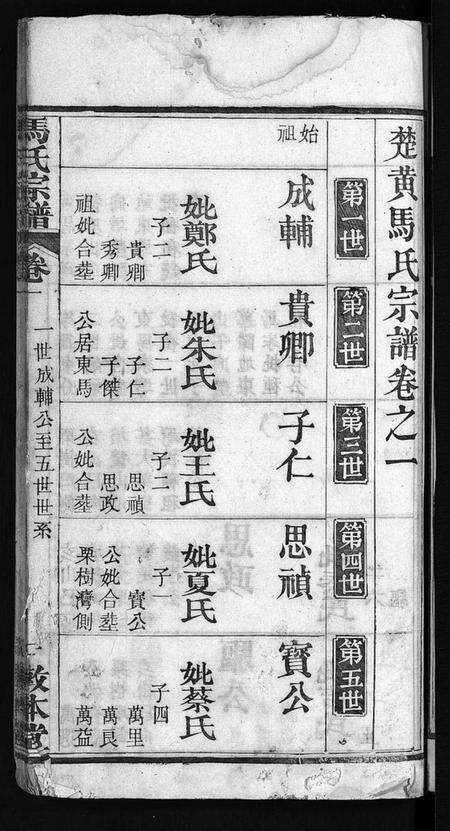 楚黄馬氏宗譜卷之一
第一世
始祖
成輔
妣鄭氏
子二
貴卿
秀卿
祖妣合塟
第二世
貴卿
妣朱氏
子二
子仁
子傑
公居東馬
第三世
子仁
妣王氏
子二
思禎
思政
公妣合塟
第四世
思禎
妣夏氏
子一
寳公
公妣合塟
栗樹灣側
第五世
寳公
妣蔡氏
子四
萬里
萬良
萬益
馬氏宗譜
卷一
一世成輔公至五世世系
敦本堂